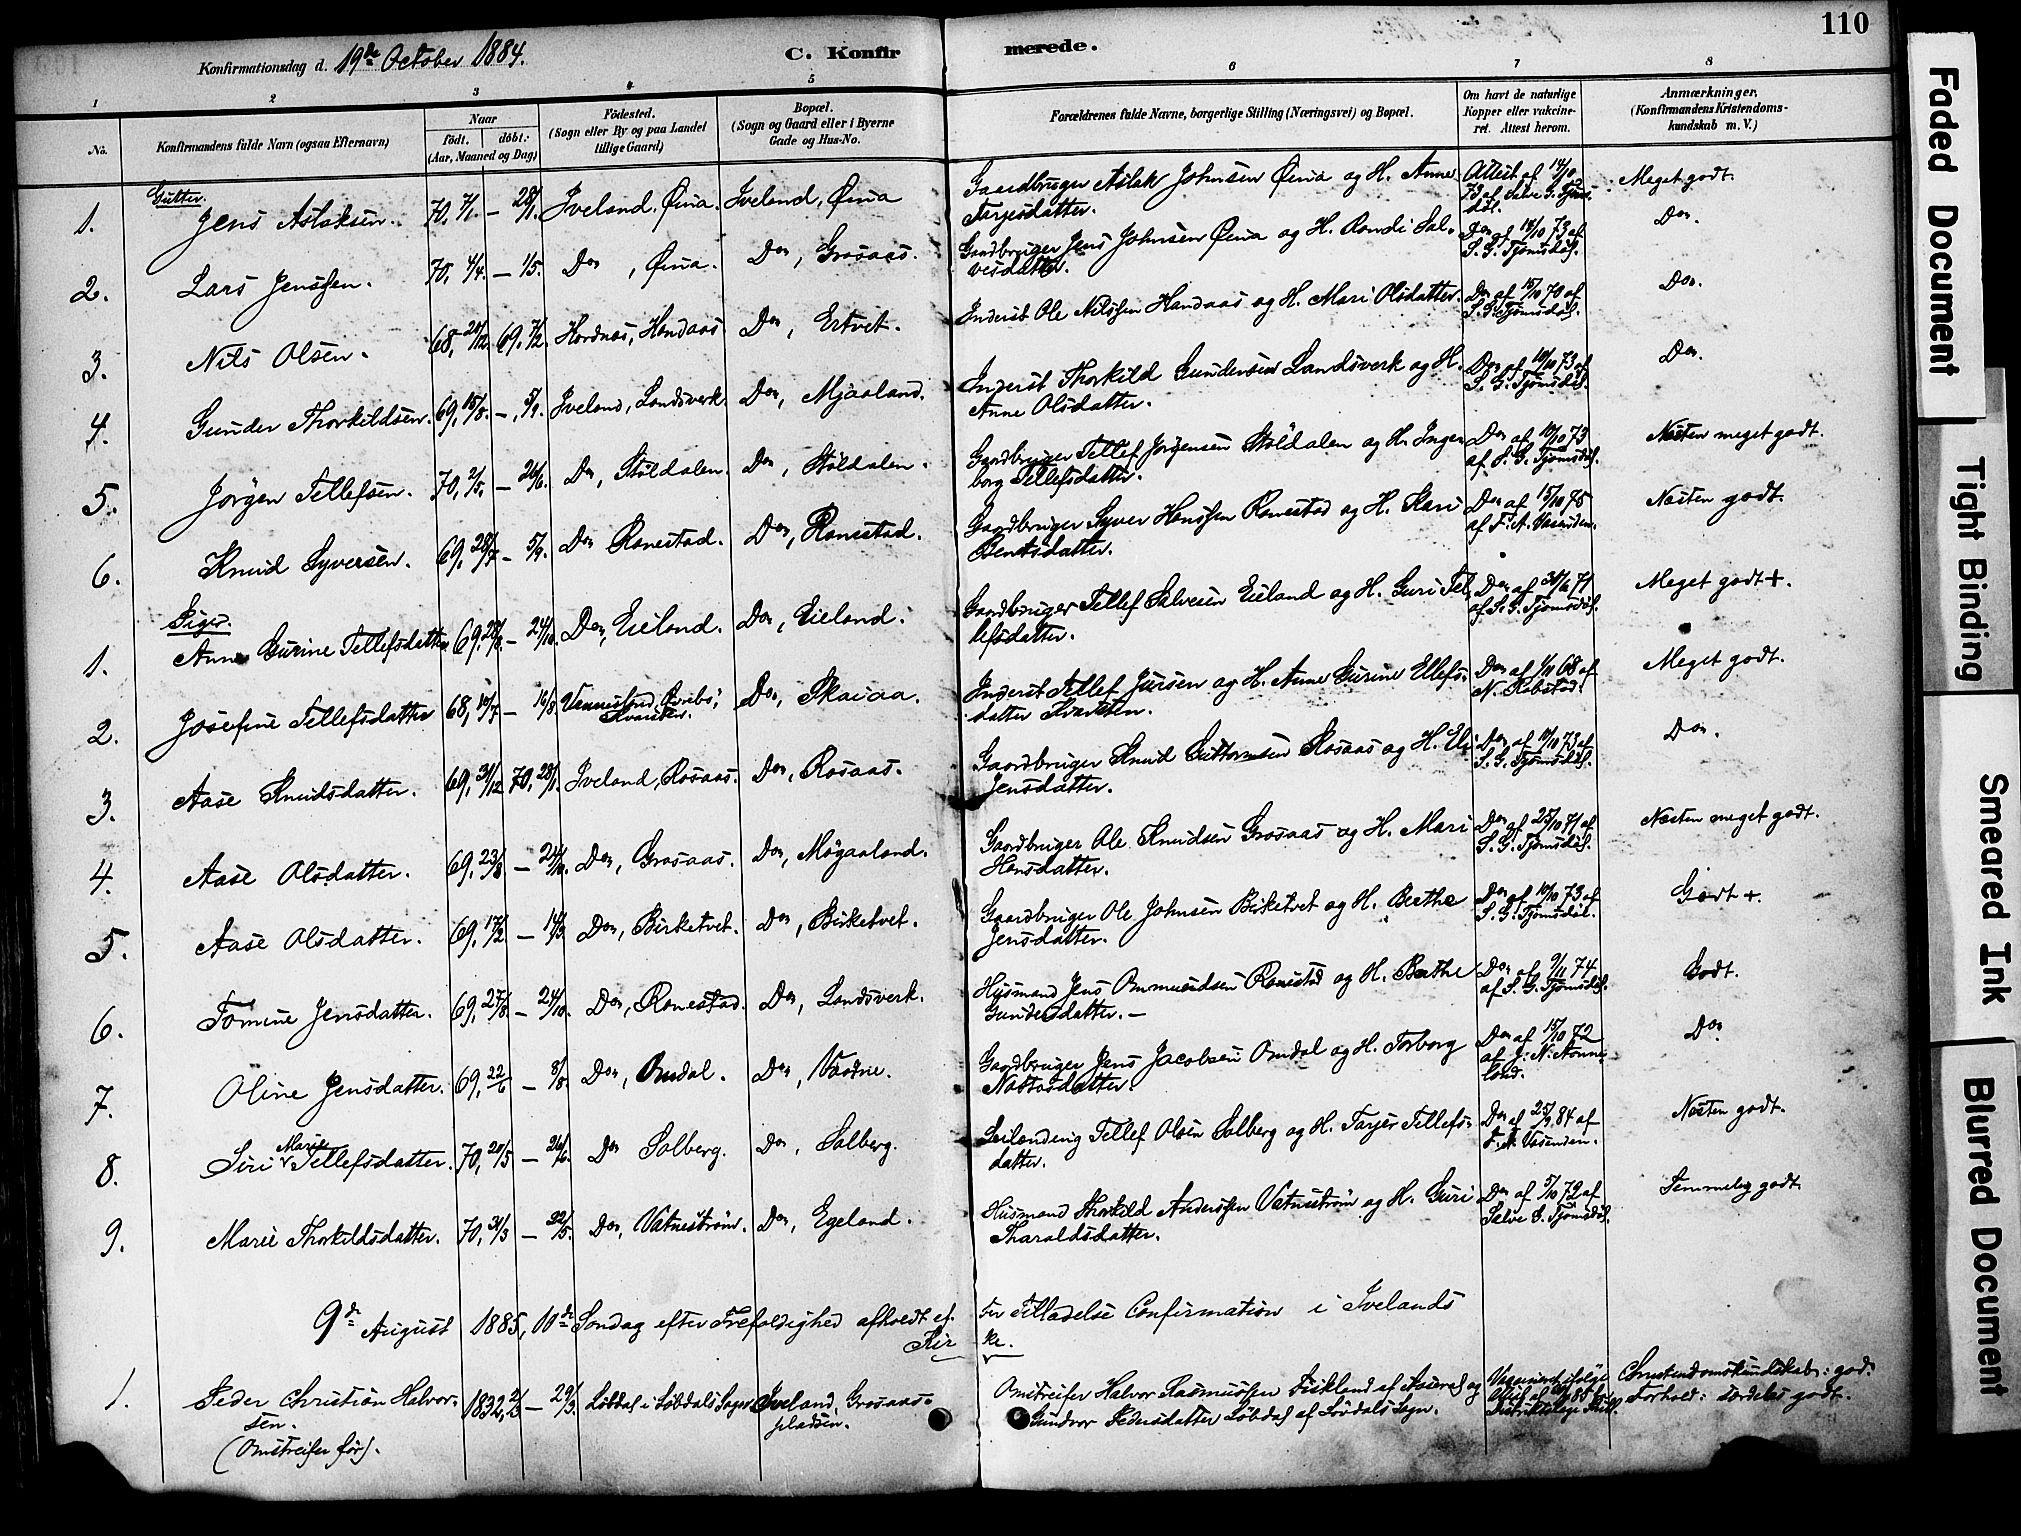 110
Konfirmationsdag d. 19de October 1884. C. Konfirmerede.
1 2 3 4 5 6 7 8
No. Konfirmandens fulde Navn (ogsaa Efternavn) Naar født. døbt. (Aar, Maaned og Dag) Fødested. (Sogn eller By og paa Landet tillige Gaard) Bopæl. (Sogn og Gaard eller i Byerne Gade og Hus-No. Forældrenes fulde Navne, borgerlige Stilling (Næringsvei) og Bopæl. Om havt de naturlige Kopper eller vakcineret. Attest herom. Anmærkninger. (Konfirmandens Kristendomskundskab m. V.)
Gutter.
1. Jens Aslaksen. 70, 7/1. — 28/1. Iveland, Øina. Iveland, Øina Gaardbruger Aslak Johnsen Øina og H. Anne Attest af 14/10 Meget godt.
Terjesdatter. 73 af Salve G. Tjomsdøl.
2. Lars Jenssen. 70, 4/4. — 1/5. Do, Øina. Do, Grosaas. Gaardbruger Jens Johnsen Øina og H. Randi Sal- Do af 18/10 73 af Do.
vesdatter. S. G. Tjomsdøl.
3. Nils Olsen. 68, 20/12 69, 7/2. Hordnæs, Handaas Do, Ertvet. Inderst Ole Nilssen Handaas og H. Mari Olsdatter. Do af 15/10 70 af Do.
S. G. Tjomsdøl.
4. Gunder Thorkildsen. 69, 15/8. —, 5/9. Iveland, Landsverk. Do, Mjaaland. Inderst Thorkild Gundersen Landsverk og H. Do af 10/10 73 af Do.
Anne Olsdatter. S. G. Tjomsdøl.
5. Jørgen Tellefsen. 70, 2/5. — 26/6. Do, Støldalen. Do, Støldalen. Gaardbruger Tellef Jørgensen Støldalen og H. Inge- Do af 10/10 73 Næsten meget godt.
borg Tellefsdatter. af S. G. Tjomsdøl.
6. Knud Syversen. 69, 28/7 — 5/9. Do Ronestad. Do, Ronestad. Gaardbruger Syver Hanssen Ronestad og H. Kari Do af 15/10 75 Næsten godt.
Bentsdatter. af F. A. Vasenden.
Piger.
1. Anne Gurine Tellefsdatter 69, 28/8 — 24/10. Do, Eieland. Do, Eieland. Gaardbruger Tellef Salvesen Eieland og H. Guri Tel- Do af 30/6 71 Meget godt +.
lefsdatter. af S. G. Tjomsdøl.
2. Josefine Tellefsdatter 68, 10/7 — 16/8 Vennesland, Øvrebø, Do, Skaiaa. Inderst Tellef Jursen og H. Anne Gurine Ellefs- Do af 1/11 68 af Meget godt.
Kvarsten. datter Kvarsten. N. Robstad.
3. Aase Knudsdatter. 69, 31/12 70, 28/1. Iveland, Rosaas. Do, Rosaas. Gaardbruger Knud Guttormsen Rosaas og H. Eli Do af 10/10 73 af Do.
Jensdatter. S. G. Tjomsdøl.
4. Aase Olsdatter. 69, 23/8 — 24/10. Do, Grosaas. Do, Møgaaland. Gaardbruger Ole Knudsen Grosaas og H. Mari Do af 25/10 71 af Næsten meget godt.
Hansdatter. S. G. Tjomsdøl.
5. Aase Olsdatter. 69, 17/2 — 14/3 Do, Birketvet. Do, Birketvet. Gaardbruger Ole Johnsen Birketvet og H. Berthe Do af 10/10 73 af Godt +.
Jensdatter. S. G. Tjomsdøl.
6. Tomine Jensdatter. 69, 27/8. — 24/10. Do, Ronestad. Do, Landsverk. Husmand Jens Ommundsen Ronestad og H. Berthe Do af 9/11 74 Godt.
Gundersdatter. — af S. G. Tjomsdøl.
7. Oline Jensdatter. 69, 22/6 — 8/8. Do, Omdal. Do, Vaatne. Gaardbruger Jens Jacobsen Omdal og H. Torborg Do af 15/10 72 Do
Nottosdatter. af J. N. Aanneland.
8. Siri Marie Tellefsdatter. 70, 20/5 — 26/6. Do Solberg. Do, Solberg. Leilænding Tellef Olsen Solberg og H. Torjer Tellefs- Do af 25/9 84 af Næsten godt.
datter. F. A. Vasenden.
9. Marie Thorkildsdatter. 70, 31/3 — 22/5. Do, Vatnestrøm. Do, Egeland. Husmand Thorkild Anderssen Vatnestrøm og H. Guri Do af 5/10 72 af Temmelig godt.
Tharaldsdatter. Salve G. Tjomsdøl.
9de August 1885, 10de Søndag efter Trefoldighed afholdt efter Tilladelse Confirmation i Ivelands
Kirke.
1. Peder Christian Halvor- 1832, 2/3 — 29/3. Løbdal i Løbdals Sogn Iveland, Grosaas- Omstreifer Halvor Rasmussen Fiskland af Aaserød og Vaccineret ifølge Christendomskundskab: god.
sen. pladsen. Gundvor Pedersdatter Løbdal af Lørdals Sogn. Distriktslæge Forhold: særdeles godt.
(Omstreifer før).
Faded Document
Tight Binding
Smeared Ink
Blurred Document